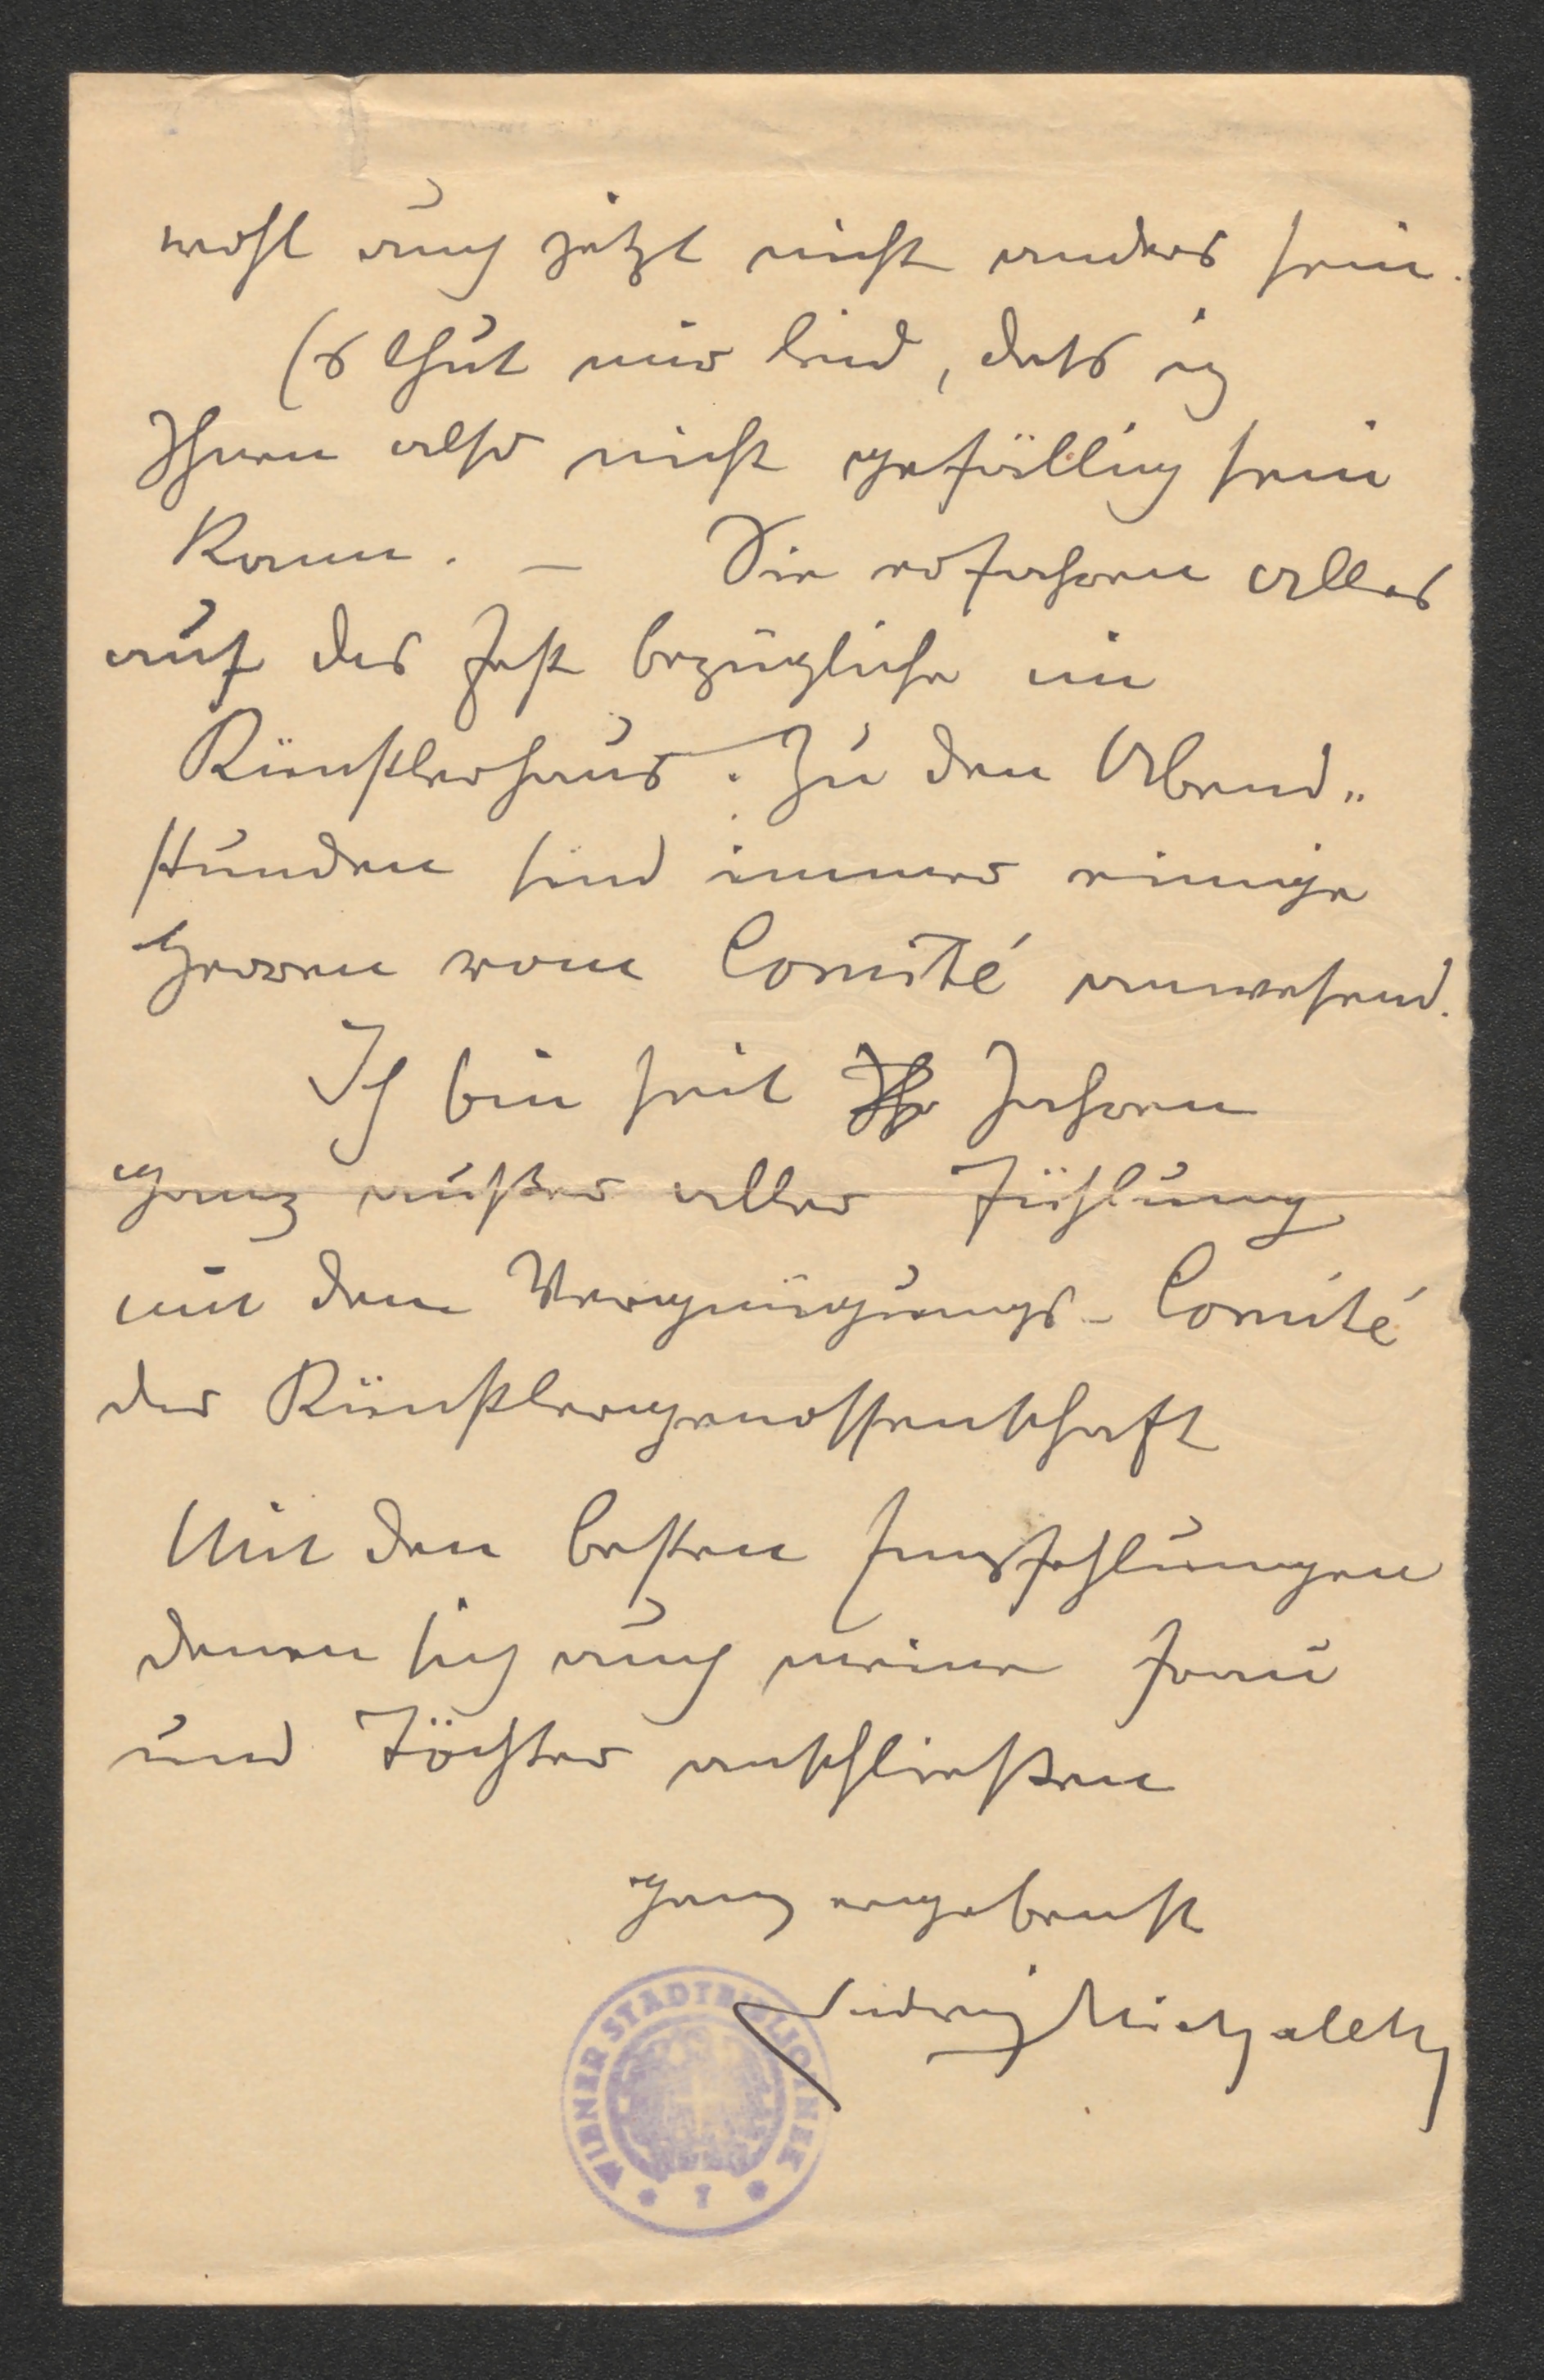 wohl auch jetzt nicht anders sein.
Es thut mir leid, dass ich
Ihnen also nicht gefällig sein
kann. – Sie erfahren alles
auf das Fest bezügliche im
Künstlerhaus. Zu den Abend„
stunden sind immer einige
Herren vom Comité anwesend.
Ich bin seit Jahren
ganz außer aller Fühlung
mit dem Vergnügungs-Comité
der Künstlergenossenschaft
Mit den besten Empfehlungen
denen sich auch meine Frau
und Töchter anschließen
ganz ergebenst
Ludwig Michalek
WIENER STADTBIBLIOTHEK